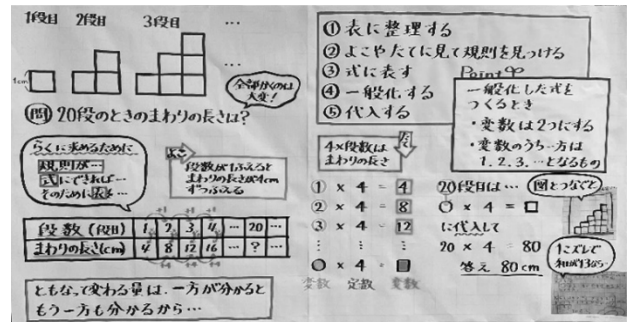 1段目 2段目 3段目 …
1cm
全部かくのは
大変!
問 20段のときのまわりの長さは?
らくに求めるために
規則が…
式にできれば…
そのために表を…
よこ
段数が1ふえると
まわりの長さが4cm
ずつふえる
段数(段目) 1 2 3 4 … 20 …
まわりの長さ(cm) 4 8 12 16 … ? …
+1 +1 +1
+4 +4 +4
ともなって変わる量は、一方が分かると
もう一方も分かるから…
① 表に整理する
② よこやたてに見て規則を見つける
③ 式に表す
④ 一般化する
⑤ 代入する
Point
一般化した式を
つくるとき
・変数は2つにする
・変数のうち一方は
1.2.3.…となるもの
たて
4×段数は
まわりの長さ
① × 4 = 4
② × 4 = 8
③ × 4 = 12
⋮ ⋮ ⋮
○ × 4 = □
変数 定数 変数
20段目は…
○ × 4 = □
に代入して
20 × 4 = 80
答え 80cm
図とつなぐと
1こズレて